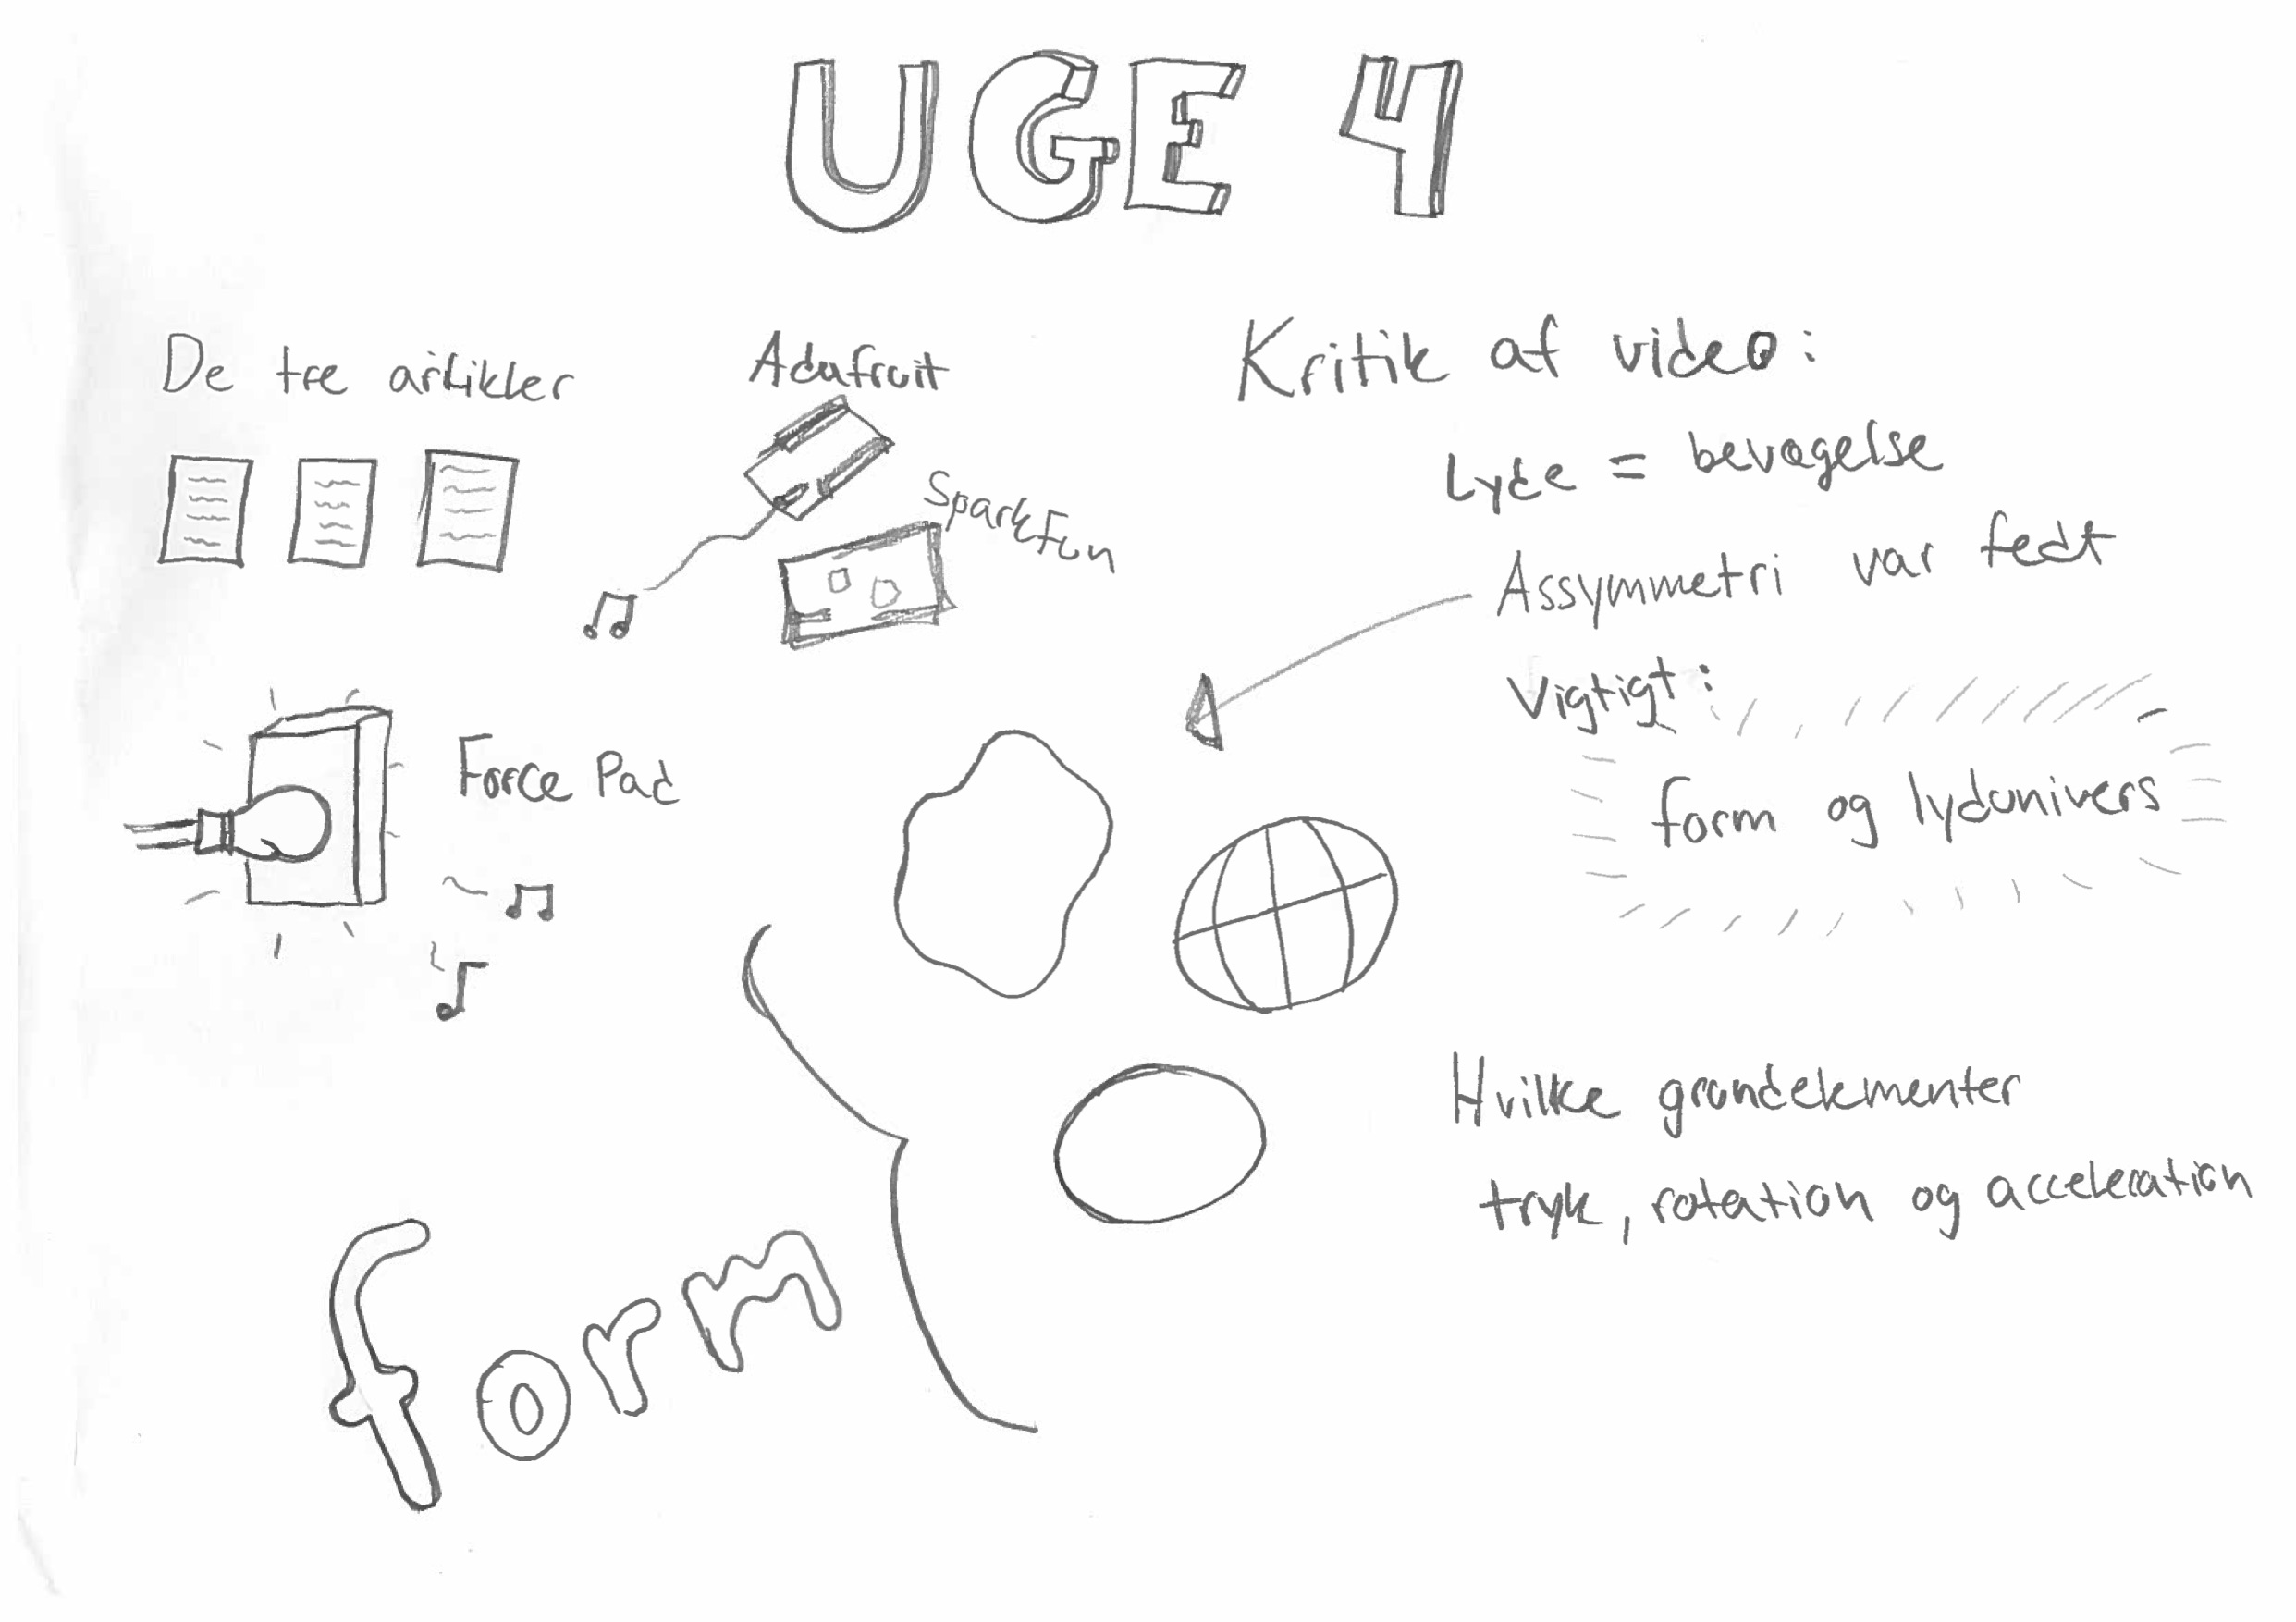 UGE 4
De tre artikler
Adafruit
SparkFun
Force Pad
form
Kritik af video:
Lyde = bevægelse
Assymmetri var fedt
Vigtigt:
form og lydunivers
Hvilke grundelementer
tryk, rotation og acceleration